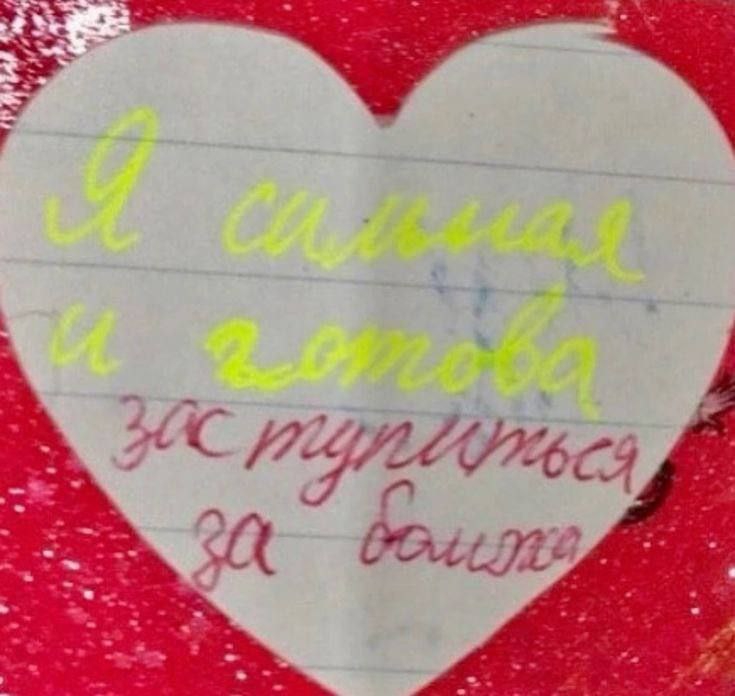 Я сильная
и готова
заступиться
за